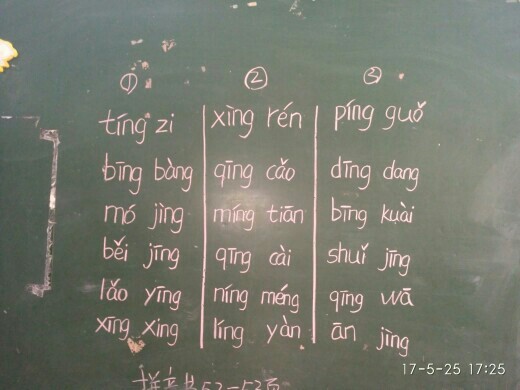 ① ② ③
tíng zi xìng rén píng guǒ
bīng bàng qīng cǎo dīng dang
mó jìng míng tiān bīng kuài
běi jīng qīng cài shuǐ jīng
lǎo yīng níng méng qīng wā
xīng xing líng yàn ān jìng
17-5-25 17:25